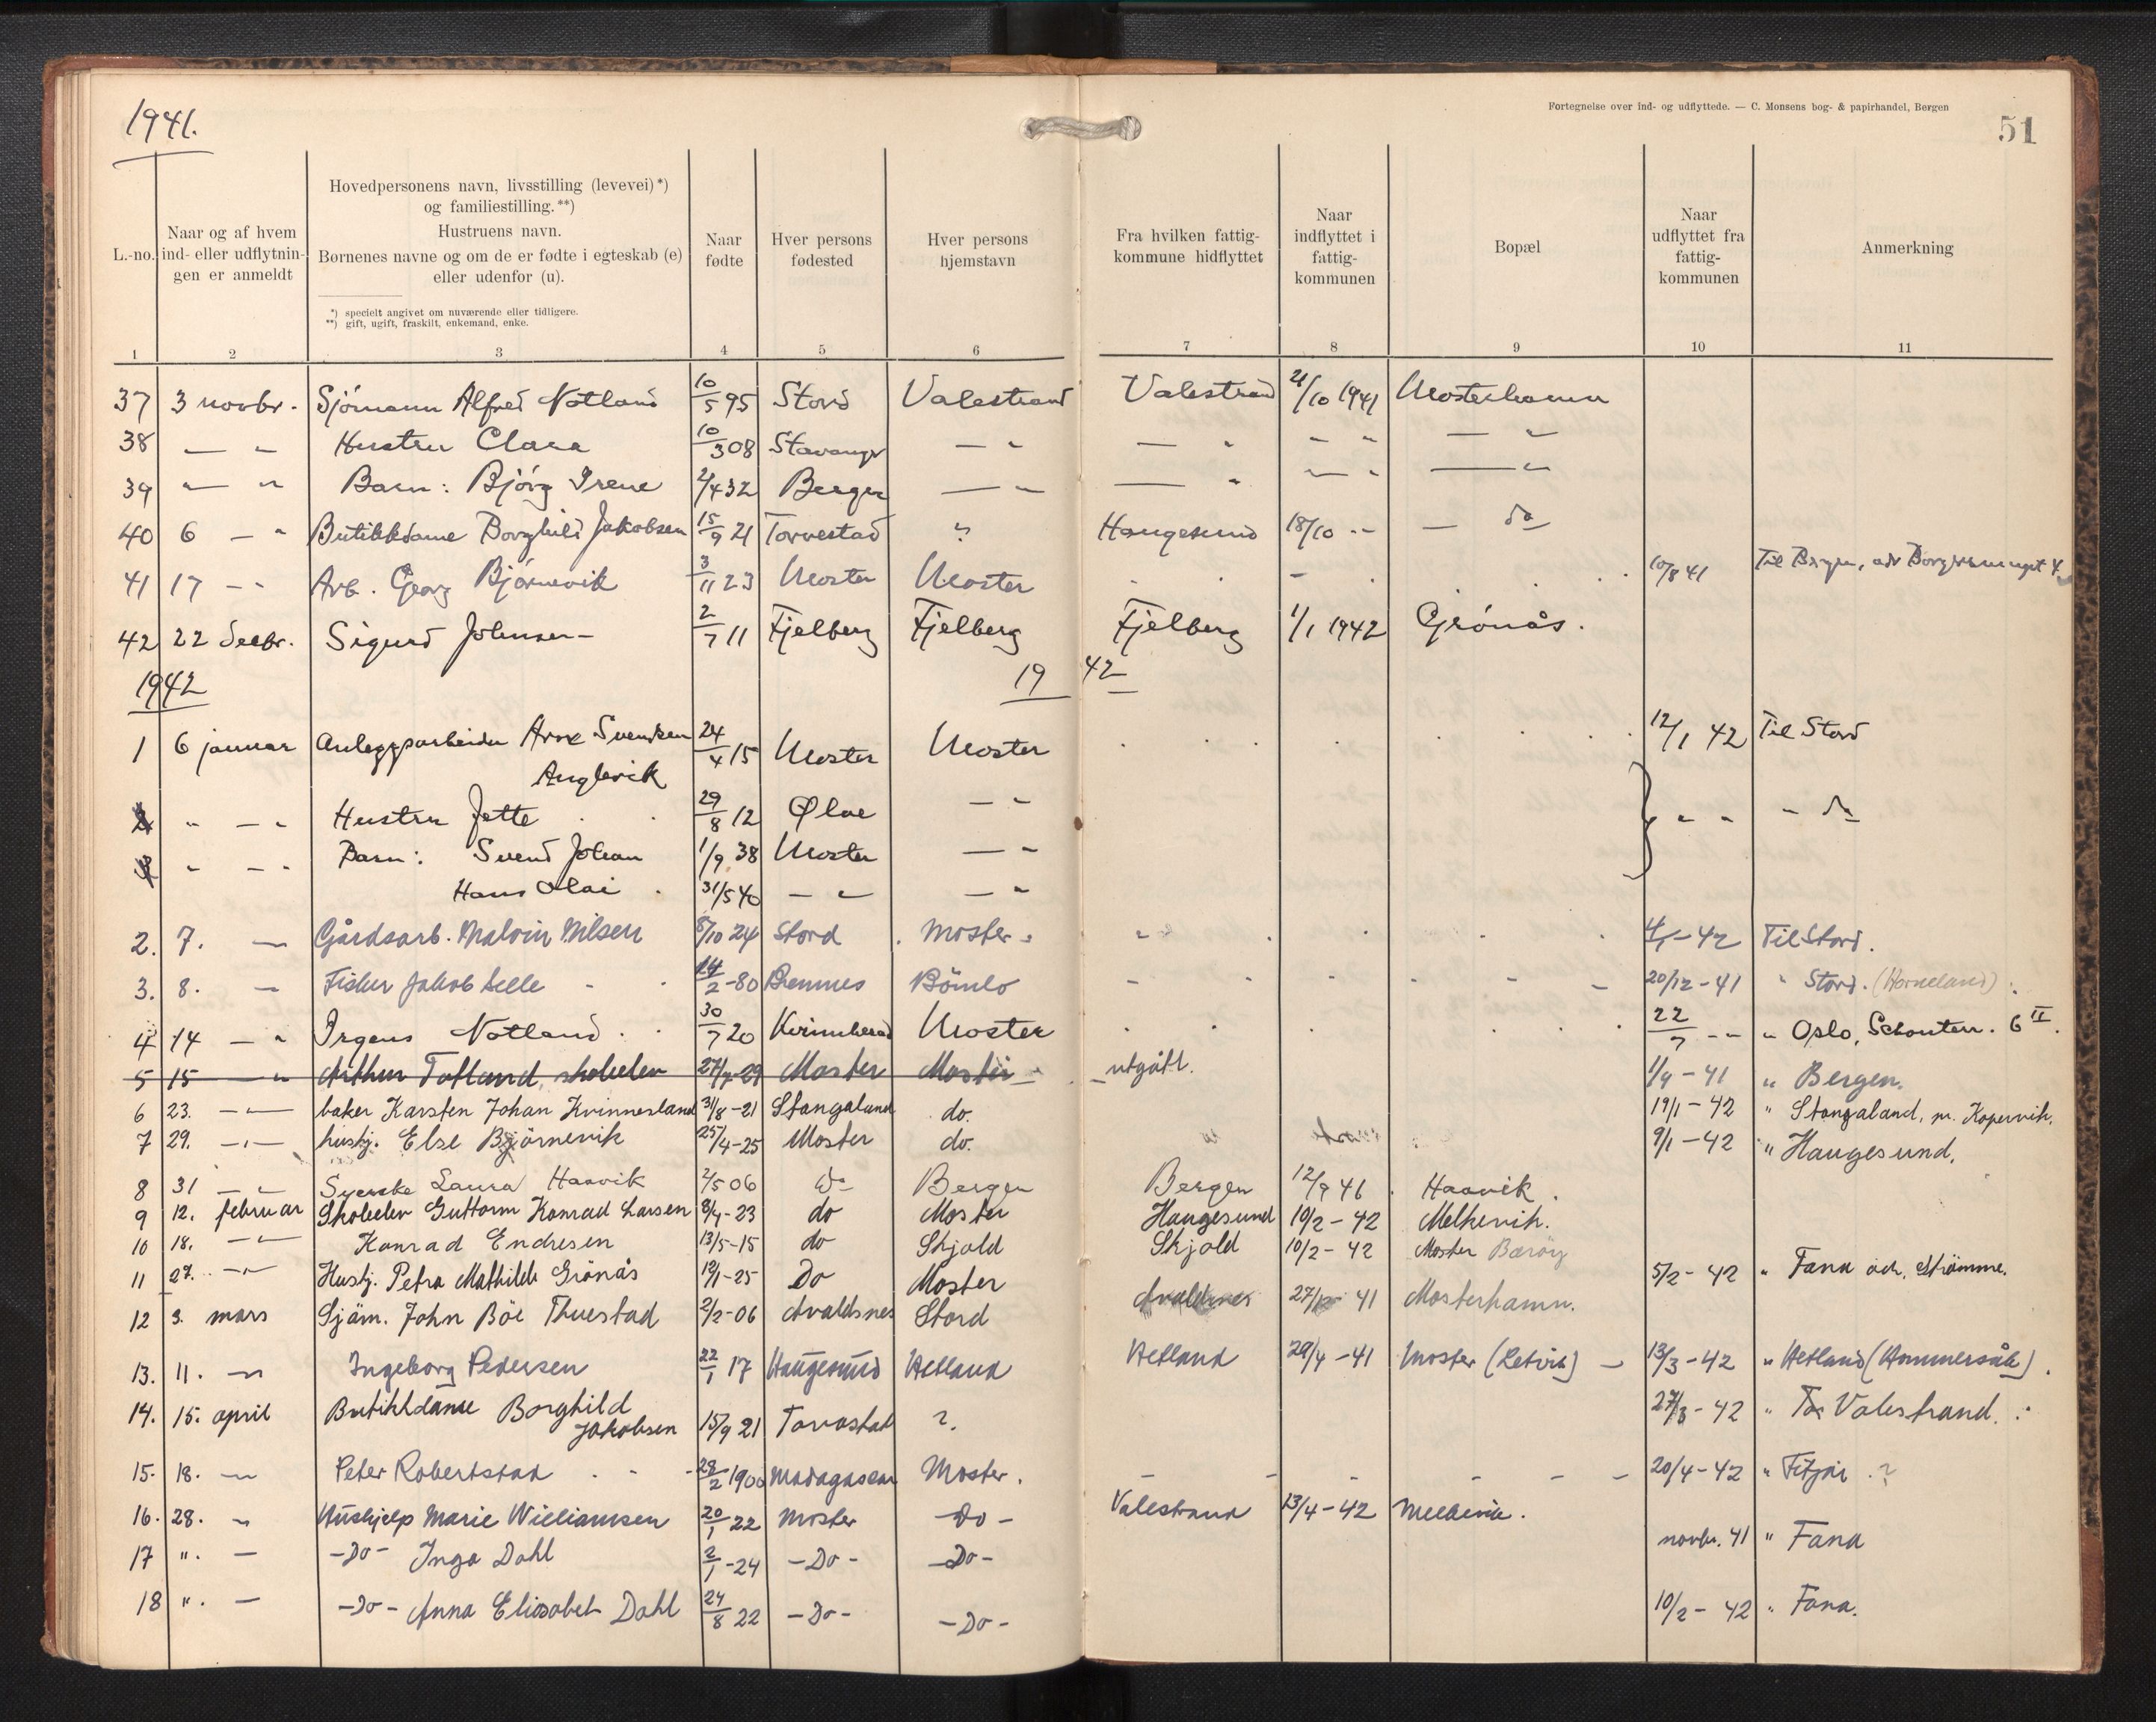 1941.
Fortegnelse over ind- og udflyttede. — C. Monsens bog- & papirhandel, Bergen
51
L.-no.
Naar og af hvem ind- eller udflytnin- gen er anmeldt
Hovedpersonens navn, livsstilling (levevei)*)
og familiestilling.**)
Hustruens navn.
Børnenes navne og om de er fødte i egteskab (e)
eller udenfor (u).
*) specielt angivet om nuværende eller tidligere.
**) gift, ugift, fraskilt, enkemand, enke.
Naar fødte
Hver persons fødested
Hver persons hjemstavn
Fra hvilken fattig- kommune hidflyttet
Naar indflyttet i fattig- kommunen
Bopæl
Naar udflyttet fra fattig- kommunen
Anmerkning
1 2 3 4 5 6 7 8 9 10 11
37 3 novbr. Sjömann Alfred Notland 10/5 95 Stord Valestrand Valestrand /10 1941 Mosterhamn
38 — " Hustru Clara 10/3 08 Stavanger — " — " " " — "
39 — " Barn: Bjørg Irene 2/4 32 Bergen — " — " — " — "
40 6 — " Butikkdame Borghild Jakobsen 15/9 21 Torvestad ? Haugesund 18/10 -- — do
41 17 - " Arb. Georg Bjørnevik 3/11 23 Moster Moster 10/8 41 Til Bergen, adr
42 22 desbr. Sigurd Johnsen 2/7 11 Fjelberg Fjelberg Fjelberg 1/1 1942 Grönås.
1942 19 42
1 6 januar Anleggsarbeider Arne Svendsen 24/4 15 Moster Moster 12/1 42 Til Stord
Anglevik
2 " — " Hustru Jette 29/8 12 Ølve — " " " - do
3 " - " Barn: Svend Johan 1/9 38 Moster — "
Hans Olai 31/5 40 — " — "
2. 7. — Gårdsarb. Malvin Nilsen 8/10 24 Stord Moster 4/1-42 Til Stord.
3. 8. — Fisker Jakob Selle 14/2-80 Bremnes Bömlo 20/12-41 " Stord. (Horneland)
4 14 — " Irgens Notland 30/7 20 Kvinnherad Moster 22/7 -- " Oslo, Schouterr. 6 II.
5 15 — " Arthur Totland, skoleelev 27/7-29 Moster Moster utgått. 1/9-41 " Bergen.
6 23. — " baker Karsten Johan Kvinnesland 31/8-21 Stangaland do. 19/1-42 " Stangaland, pr. Kopervik.
7 29. — " hushj. Else Bjørnevik 25/4-25 Moster do. 9/1-42 " Haugesund.
8 31 — " Syerske Laura Haavik 2/5 06 do Bergen Bergen 12/9 41 Haavik.
9 12. februar Skoleelev Guttorm Konrad Larsen 8/4-23 do Moster Haugesund 10/2-42 Melkevik.
10 18. — " Konrad Endresen 13/5-15 do Skjold Skjold 10/2-42 Moster Bærøy
11 27. — " Hushj. Petra Mathilde Grönås 19/1-25 Do Moster 5/2-42 " Fana adr. Strömme.
12 3. mars Sjöm. John Böe Thuestad 2/2-06 Avaldsnes Stord Avaldsnes 27/12 41 Mosterhamn.
13. 11. — " Ingeborg Pedersen 22/1 17 Haugesund Hetland Hetland 29/4-41 Moster (Letvik) — 13/3-42 " Hetland (Hommersåk).
14. 15. april Butikkdame Borghild 15/9 21 Torvastad ?. 27/3-42 " Valestrand.
Jakobsen
15. 18. — " Peter Robertstad 28/2 1900 Madagascar Moster. 20/4-42 " Fitjar .?
16. 28. " Hushjelp Marie Williamsen 20/1 22 Moster - Do - Valestrand 13/4-42 Melkevik.
17 ". — - Do - Inga Dahl 2/1-24 - Do - - Do - novbr. 41 " Fana
18 ". — - Do - Anna Elisabet Dahl 24/8 22 - Do - - Do - 10/2-42 " Fana.